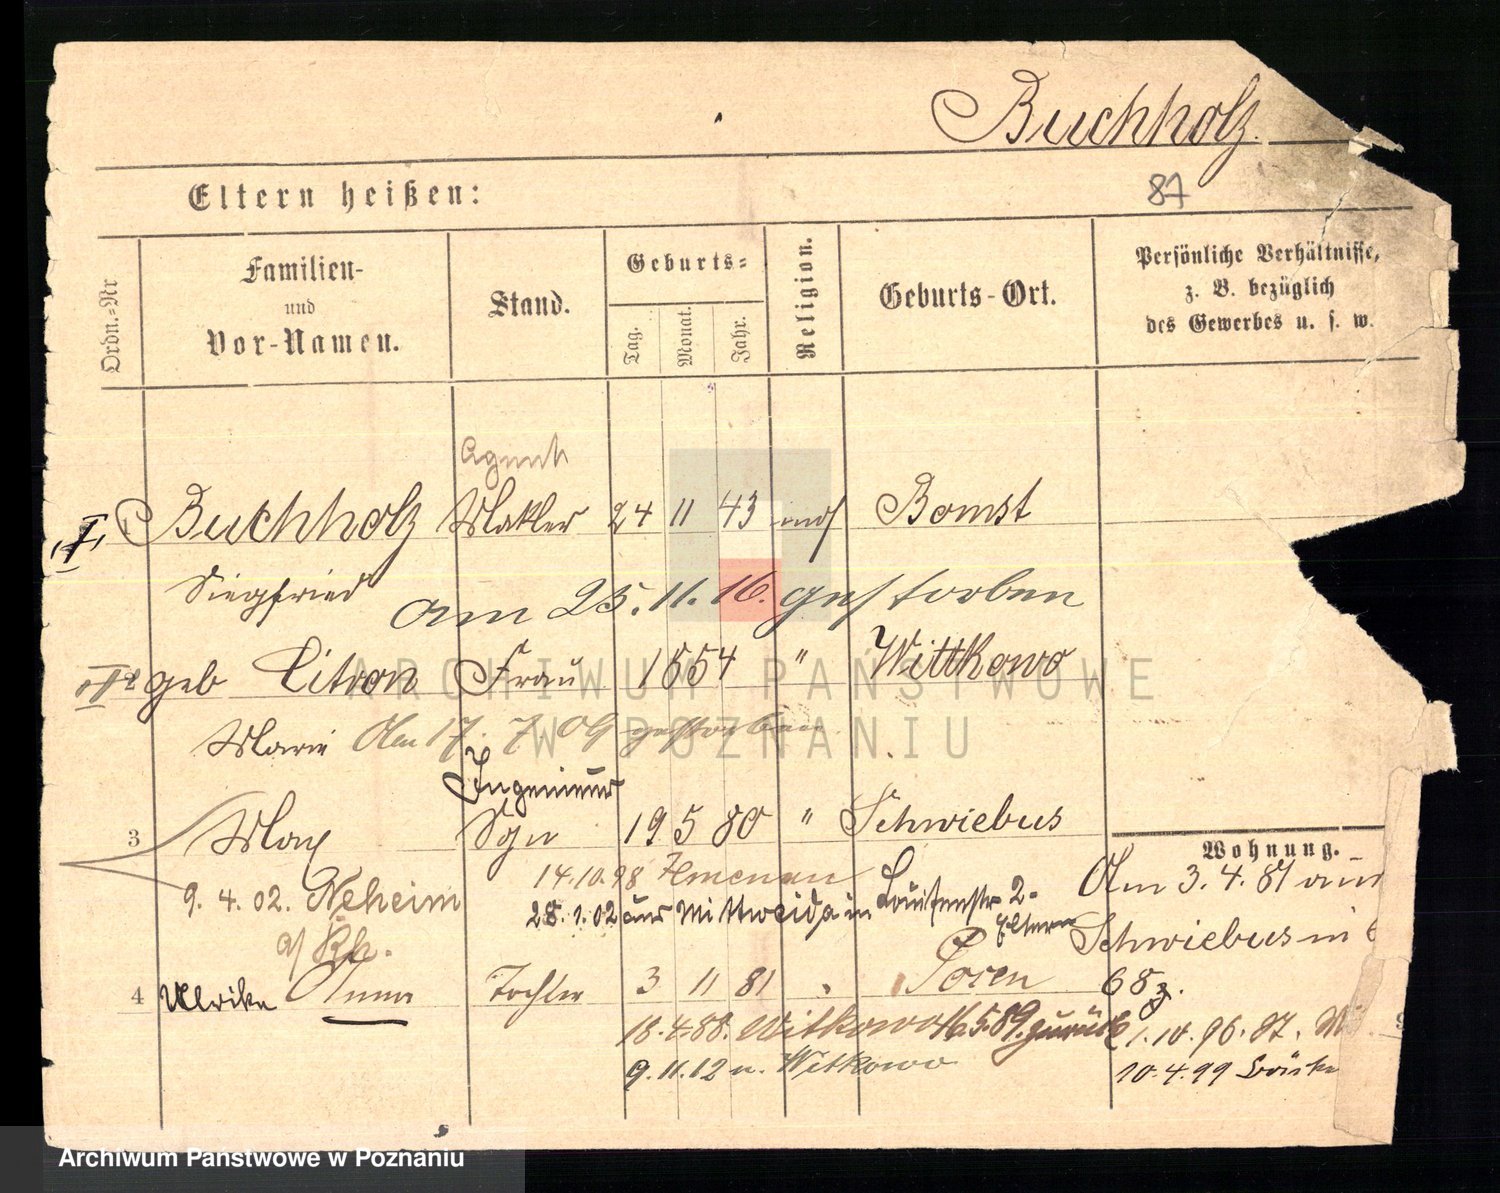 Buchholz.
87
Eltern heißen:
Ordn.-Nr
Familien-
und
Vor-Namen.
Stand.
Geburts-
Tag.
Monat.
Jahr.
Religion.
Geburts-Ort.
Persönliche Verhältnisse,
z. B. bezüglich
des Gewerbes u. s. w.
Agent
I. 1 Buchholz Makler 24 11 43 mos Bomst
Siegfried am 25. 11. 16. gestorben
II geb Citron Frau 1854 " Wittkowo
Marie Am 17. 7. 09 gestorben
Ingenieur
3 Max Sohn 19 5 80 " Schwiebus
Wohnung.
14.10.98 Ilmenau
Am 3. 4. 81 aus
9. 4. 02. Neheim
28. 1. 02 aus Mittweida in Louisenstr 2.
Eltern
Schwiebus in
a/ Rh.
4 Ulrike Anna Tochter 3 11 81 " Posen
68
18. 4. 88. Witkowo 16.5.89. zurück
1. 10. 96. 87.
9. 11. 12 n. Witkowo
10. 4. 99
ARCHIWUM PAŃSTWOWE
W POZNANIU
Archiwum Państwowe w Poznaniu